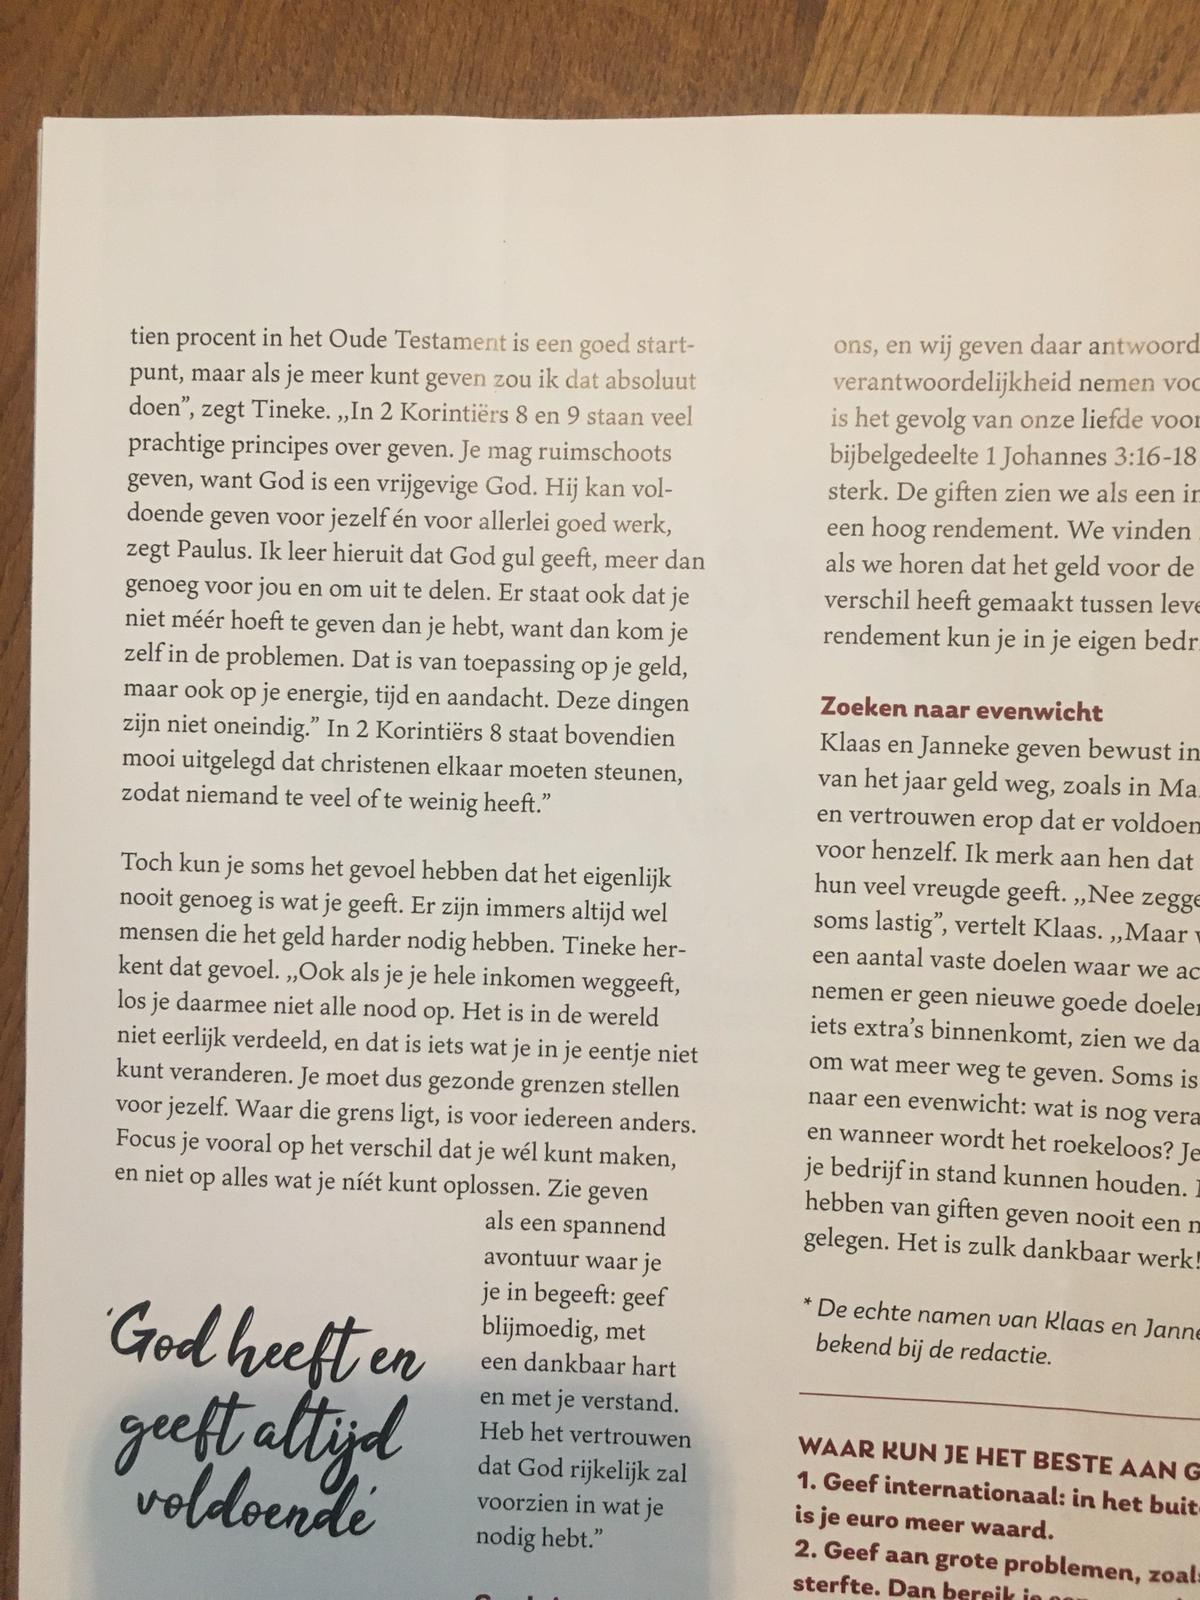 tien procent in het Oude Testament is een goed start-
punt, maar als je meer kunt geven zou ik dat absoluut
doen”, zegt Tineke. „In 2 Korintiërs 8 en 9 staan veel
prachtige principes over geven. Je mag ruimschoots
geven, want God is een vrijgevige God. Hij kan vol-
doende geven voor jezelf én voor allerlei goed werk,
zegt Paulus. Ik leer hieruit dat God gul geeft, meer dan
genoeg voor jou en om uit te delen. Er staat ook dat je
niet méér hoeft te geven dan je hebt, want dan kom je
zelf in de problemen. Dat is van toepassing op je geld,
maar ook op je energie, tijd en aandacht. Deze dingen
zijn niet oneindig.” In 2 Korintiërs 8 staat bovendien
mooi uitgelegd dat christenen elkaar moeten steunen,
zodat niemand te veel of te weinig heeft.”
Toch kun je soms het gevoel hebben dat het eigenlijk
nooit genoeg is wat je geeft. Er zijn immers altijd wel
mensen die het geld harder nodig hebben. Tineke her-
kent dat gevoel. „Ook als je je hele inkomen weggeeft,
los je daarmee niet alle nood op. Het is in de wereld
niet eerlijk verdeeld, en dat is iets wat je in je eentje niet
kunt veranderen. Je moet dus gezonde grenzen stellen
voor jezelf. Waar die grens ligt, is voor iedereen anders.
Focus je vooral op het verschil dat je wél kunt maken,
en niet op alles wat je níét kunt oplossen. Zie geven
als een spannend
avontuur waar je
je in begeeft: geef
blijmoedig, met
een dankbaar hart
en met je verstand.
Heb het vertrouwen
dat God rijkelijk zal
voorzien in wat je
nodig hebt.”
‘God heeft en
geeft altijd
voldoende’
ons, en wij geven daar antwoord
verantwoordelijkheid nemen voo
is het gevolg van onze liefde voor
bijbelgedeelte 1 Johannes 3:16-18
sterk. De giften zien we als een in
een hoog rendement. We vinden
als we horen dat het geld voor de
verschil heeft gemaakt tussen leve
rendement kun je in je eigen bedr
Zoeken naar evenwicht
Klaas en Janneke geven bewust in
van het jaar geld weg, zoals in Ma
en vertrouwen erop dat er voldoen
voor henzelf. Ik merk aan hen dat
hun veel vreugde geeft. „Nee zegge
soms lastig”, vertelt Klaas. „Maar
een aantal vaste doelen waar we ac
nemen er geen nieuwe goede doelen
iets extra’s binnenkomt, zien we da
om wat meer weg te geven. Soms is
naar een evenwicht: wat is nog vera
en wanneer wordt het roekeloos? Je
je bedrijf in stand kunnen houden.
hebben van giften geven nooit een
gelegen. Het is zulk dankbaar werk!
* De echte namen van Klaas en Janne
bekend bij de redactie.
WAAR KUN JE HET BESTE AAN G
1. Geef internationaal: in het buit
is je euro meer waard.
2. Geef aan grote problemen, zoals
sterfte. Dan bereik je